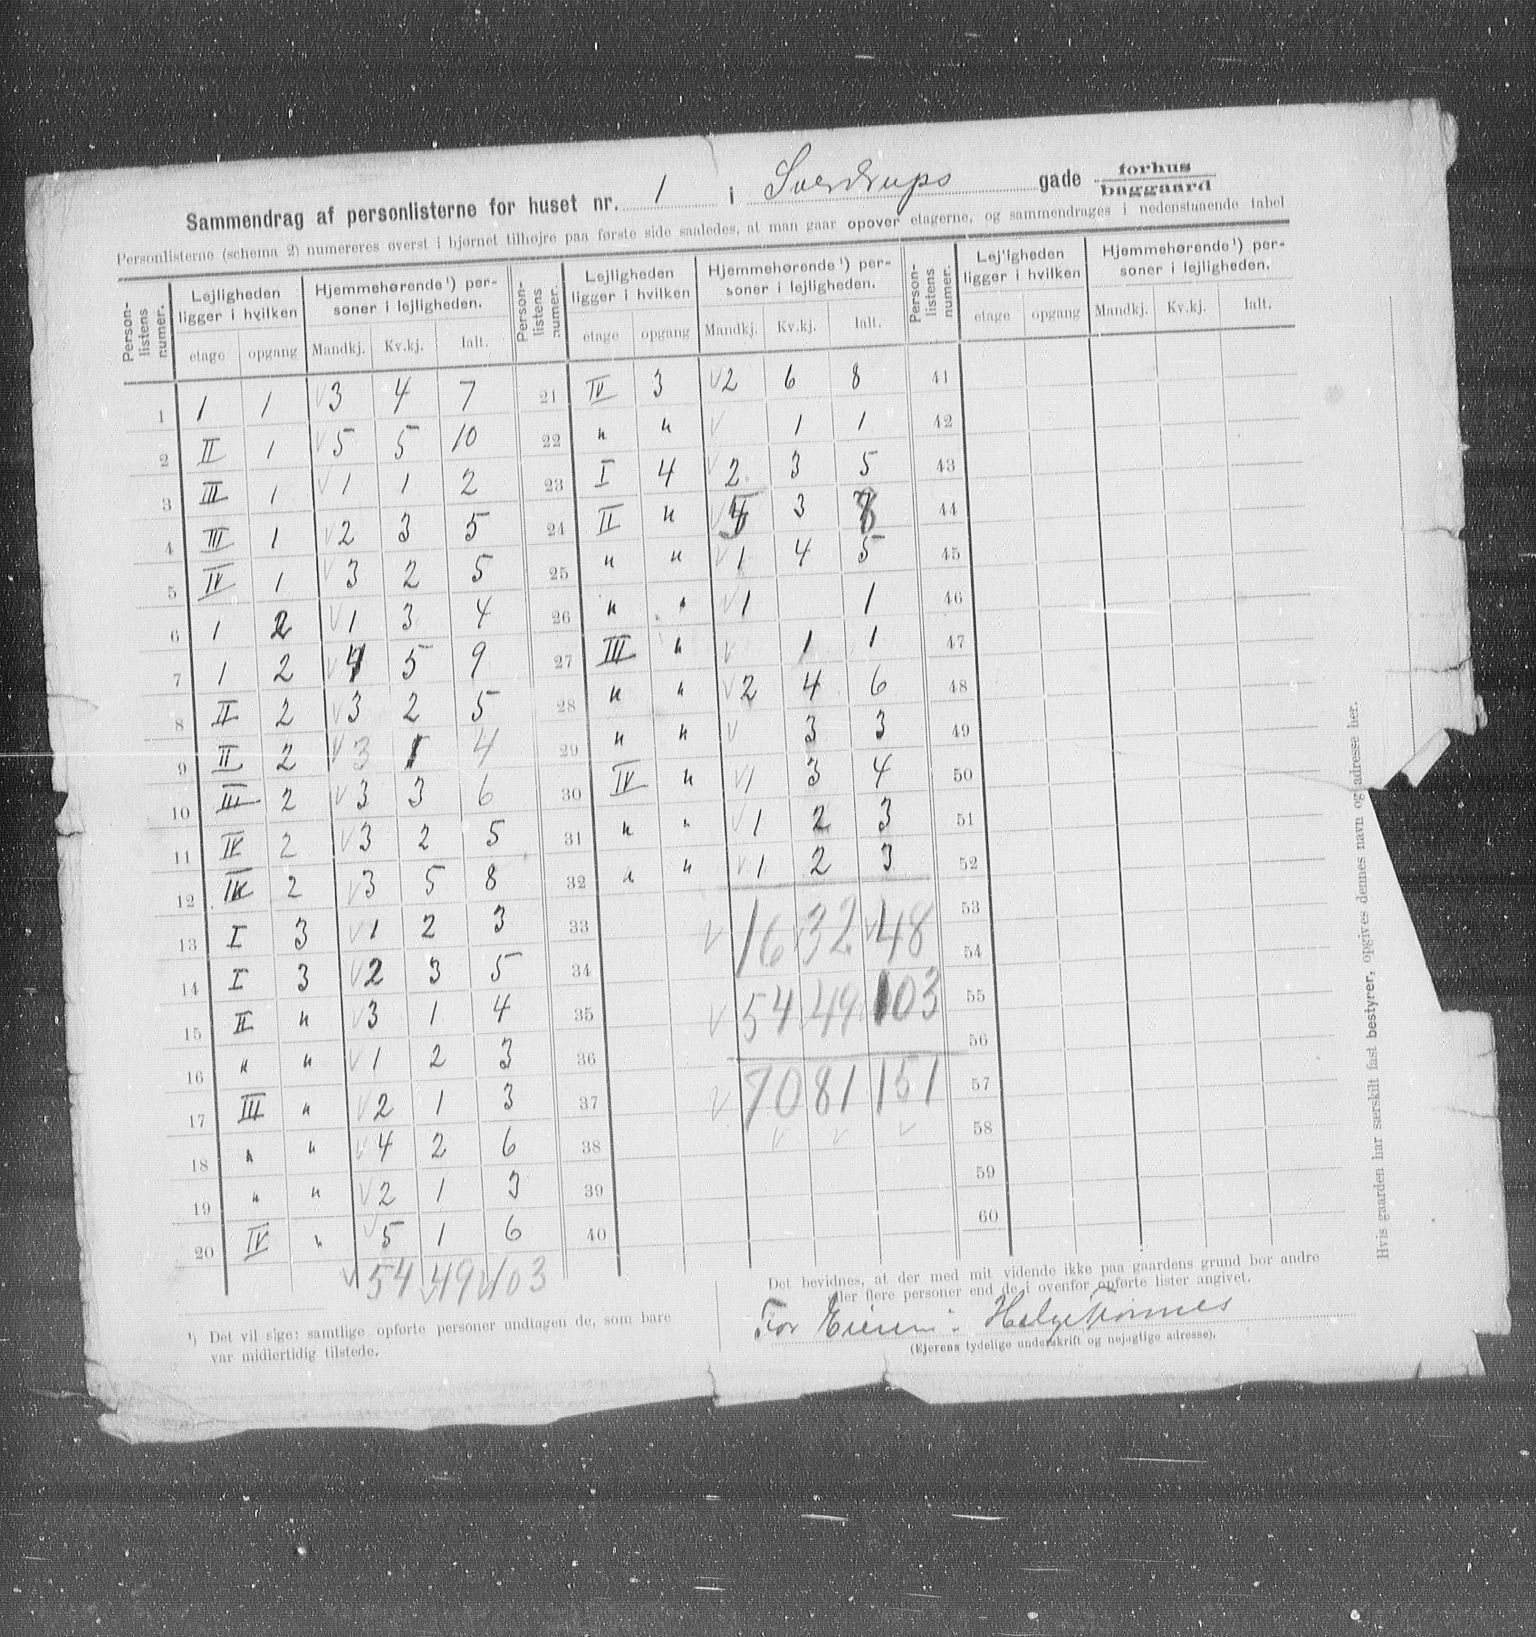 Sammendrag af personlisterne for huset nr. 1 i Sverdrups gade forhus
baggaard
Personlisterne (schema 2) numereres øverst i hjørnet tilhøjre paa første side saaledes, at man gaar opover etagerne, og sammendrages i nedenstaaende tabel
Person-listens numer. Lejligheden ligger i hvilken Hjemmehørende ¹) personer i lejligheden. Person-listens numer. Lejligheden ligger i hvilken Hjemmehørende ¹) personer i lejligheden. Person-listens numer. Lejligheden ligger i hvilken Hjemmehørende ¹) personer i lejligheden.
etage opgang Mandkj. Kv.kj. Ialt. etage opgang Mandkj. Kv.kj. Ialt. etage opgang Mandkj. Kv.kj. Ialt.
1 1 1 √3 4 7 21 IV 3 √2 6 8 41
2 II 1 √5 5 10 22 " " √ 1 1 42
3 III 1 √1 1 2 23 I 4 √2 3 5 43
4 III 1 √2 3 5 24 II " √5 3 8 44
5 IV 1 √3 2 5 25 " " √1 4 5 45
6 1 2 √1 3 4 26 " " √1 1 46
7 1 2 √4 5 9 27 III " √ 1 1 47
8 II 2 √3 2 5 28 " " √2 4 6 48
9 II 2 √3 1 4 29 " " √ 3 3 49
10 III 2 √3 3 6 30 IV " √1 3 4 50
11 IV 2 √3 2 5 31 " " √1 2 3 51
12 IV 2 √3 5 8 32 " " √1 2 3 52
13 I 3 √1 2 3 33 √16 √32 √48 53
14 I 3 √2 3 5 34 54
15 II " √3 1 4 35 √54 49 103 55
16 " " √1 2 3 36 56
17 III " √2 1 3 37 √70 81 151 57
18 " " √4 2 6 38 √ √ √ 58
19 " " √2 1 3 39 59
20 IV " √5 1 6 40 60
√54 √49 √103
¹) Det vil sige: samtlige opførte personer undtagen de, som bare
var midlertidig tilstede.
Det bevidnes, at der med mit vidende ikke paa gaardens grund bor andre
eller flere personer end de i ovenfor opførte lister angivet.
For Eieren: Helge
(Ejerens tydelige underskrift og nøjagtige adresse).
Hvis gaarden har særskilt fast bestyrer, opgives dennes navn og adresse her.